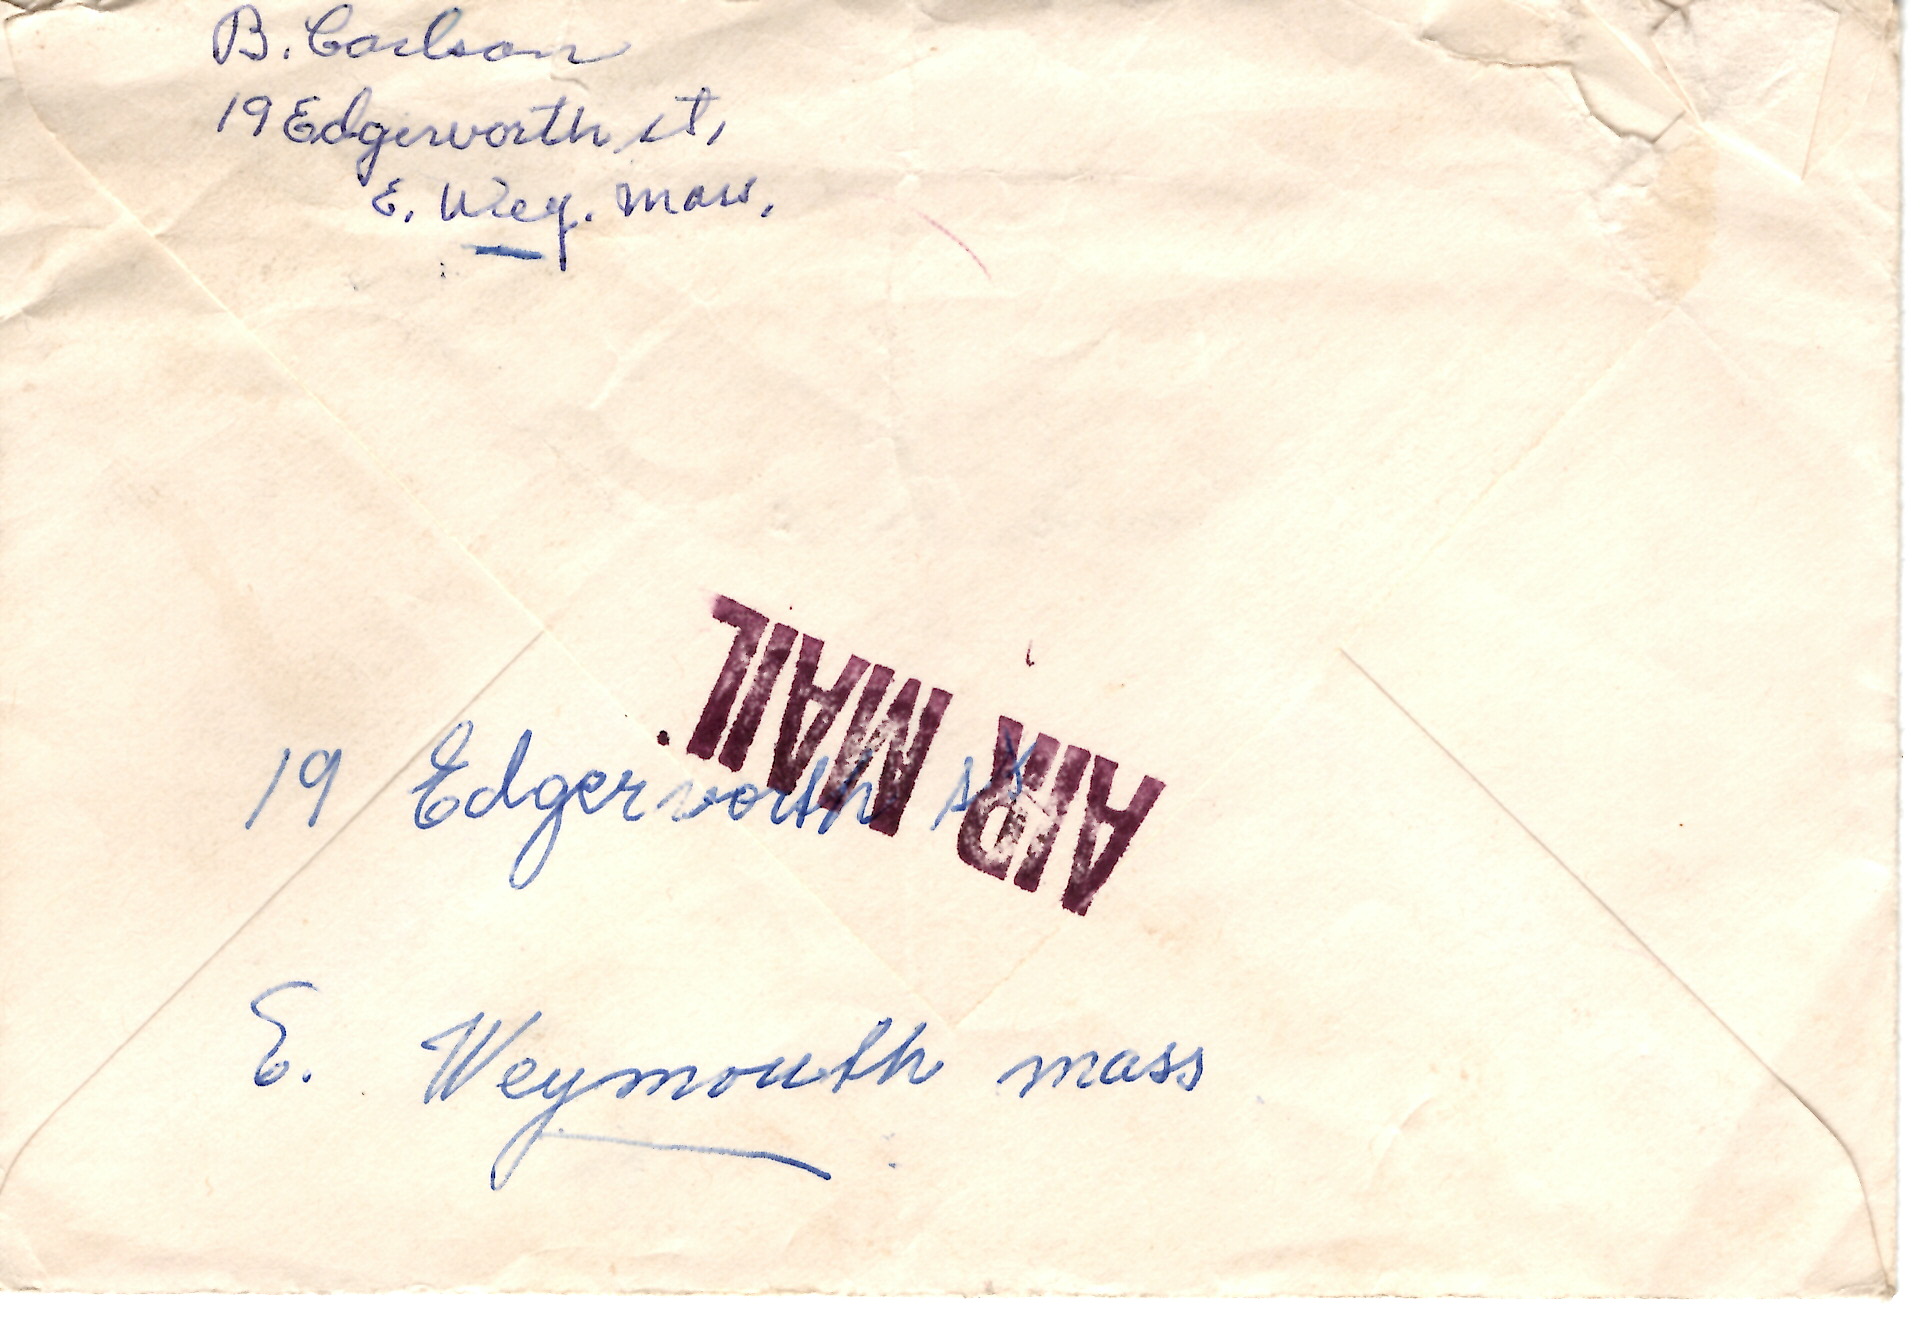 B. Carlson
19 Edgerworth st,
E. Wey. Mass.
AIR MAIL
19 Edgerworth st
E. Weymouth mass